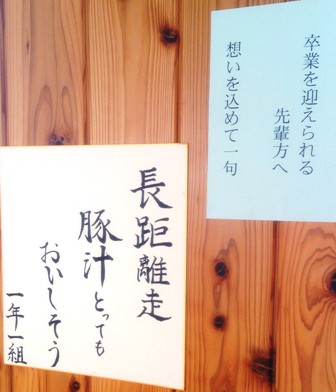 卒業を迎えられる
先輩方へ
想いを込めて一句
長距離走
豚汁とっても
おいしそう
一年一組